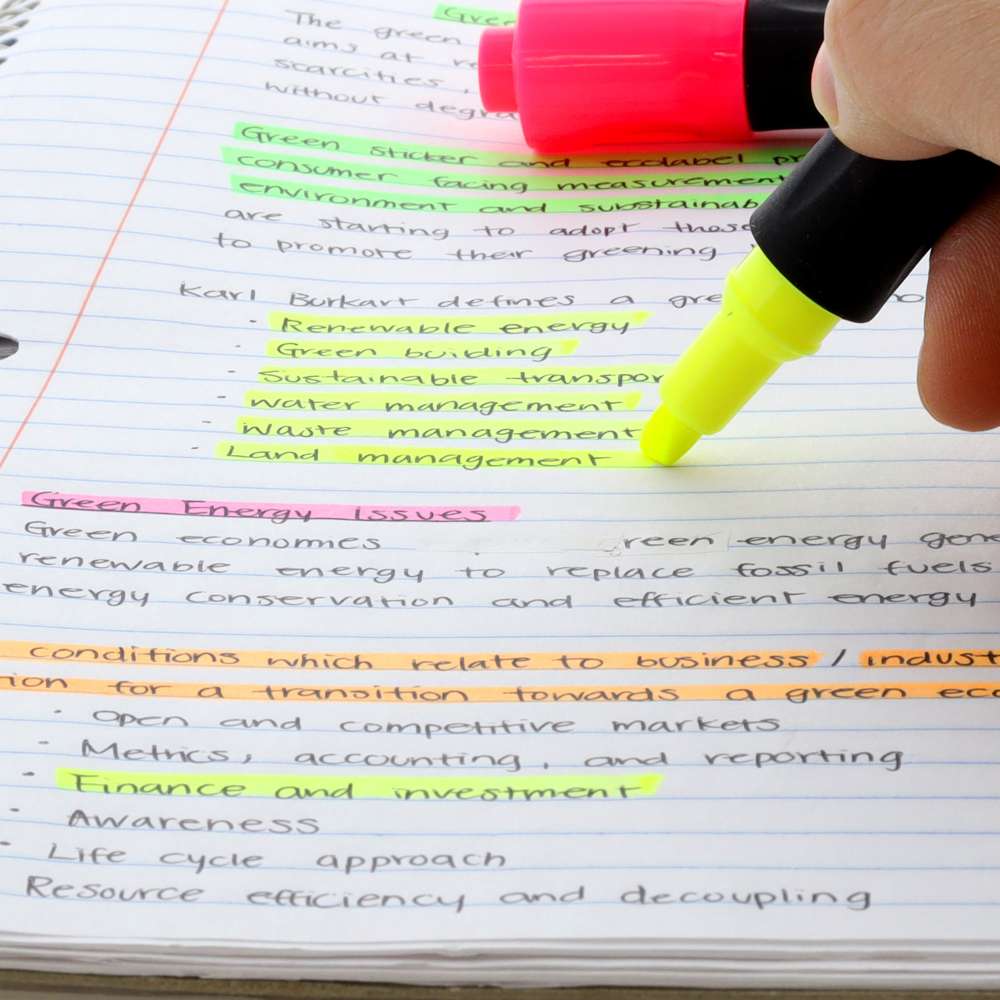 Green
The green
aims at
scarcities,
without
Green sticker and ecolabel
consumer facing measurement
environment and substainab
are starting to adopt these
to promote their greening
Karl Burkart defines a
- Renewable energy
- Green building
- Sustainable transpor
- water management
- Waste management
- Land management
Green Energy Issues
Green economies green energy gene
renewable energy to replace fossil fuels
energy conservation and efficient energy
conditions which relate to business / indust
ion for a transition towards a green eco
- Open and competitive markets
- Metrics, accounting, and reporting
- Finance and investment
- Awareness
- Life cycle approach
Resource efficiency and decoupling